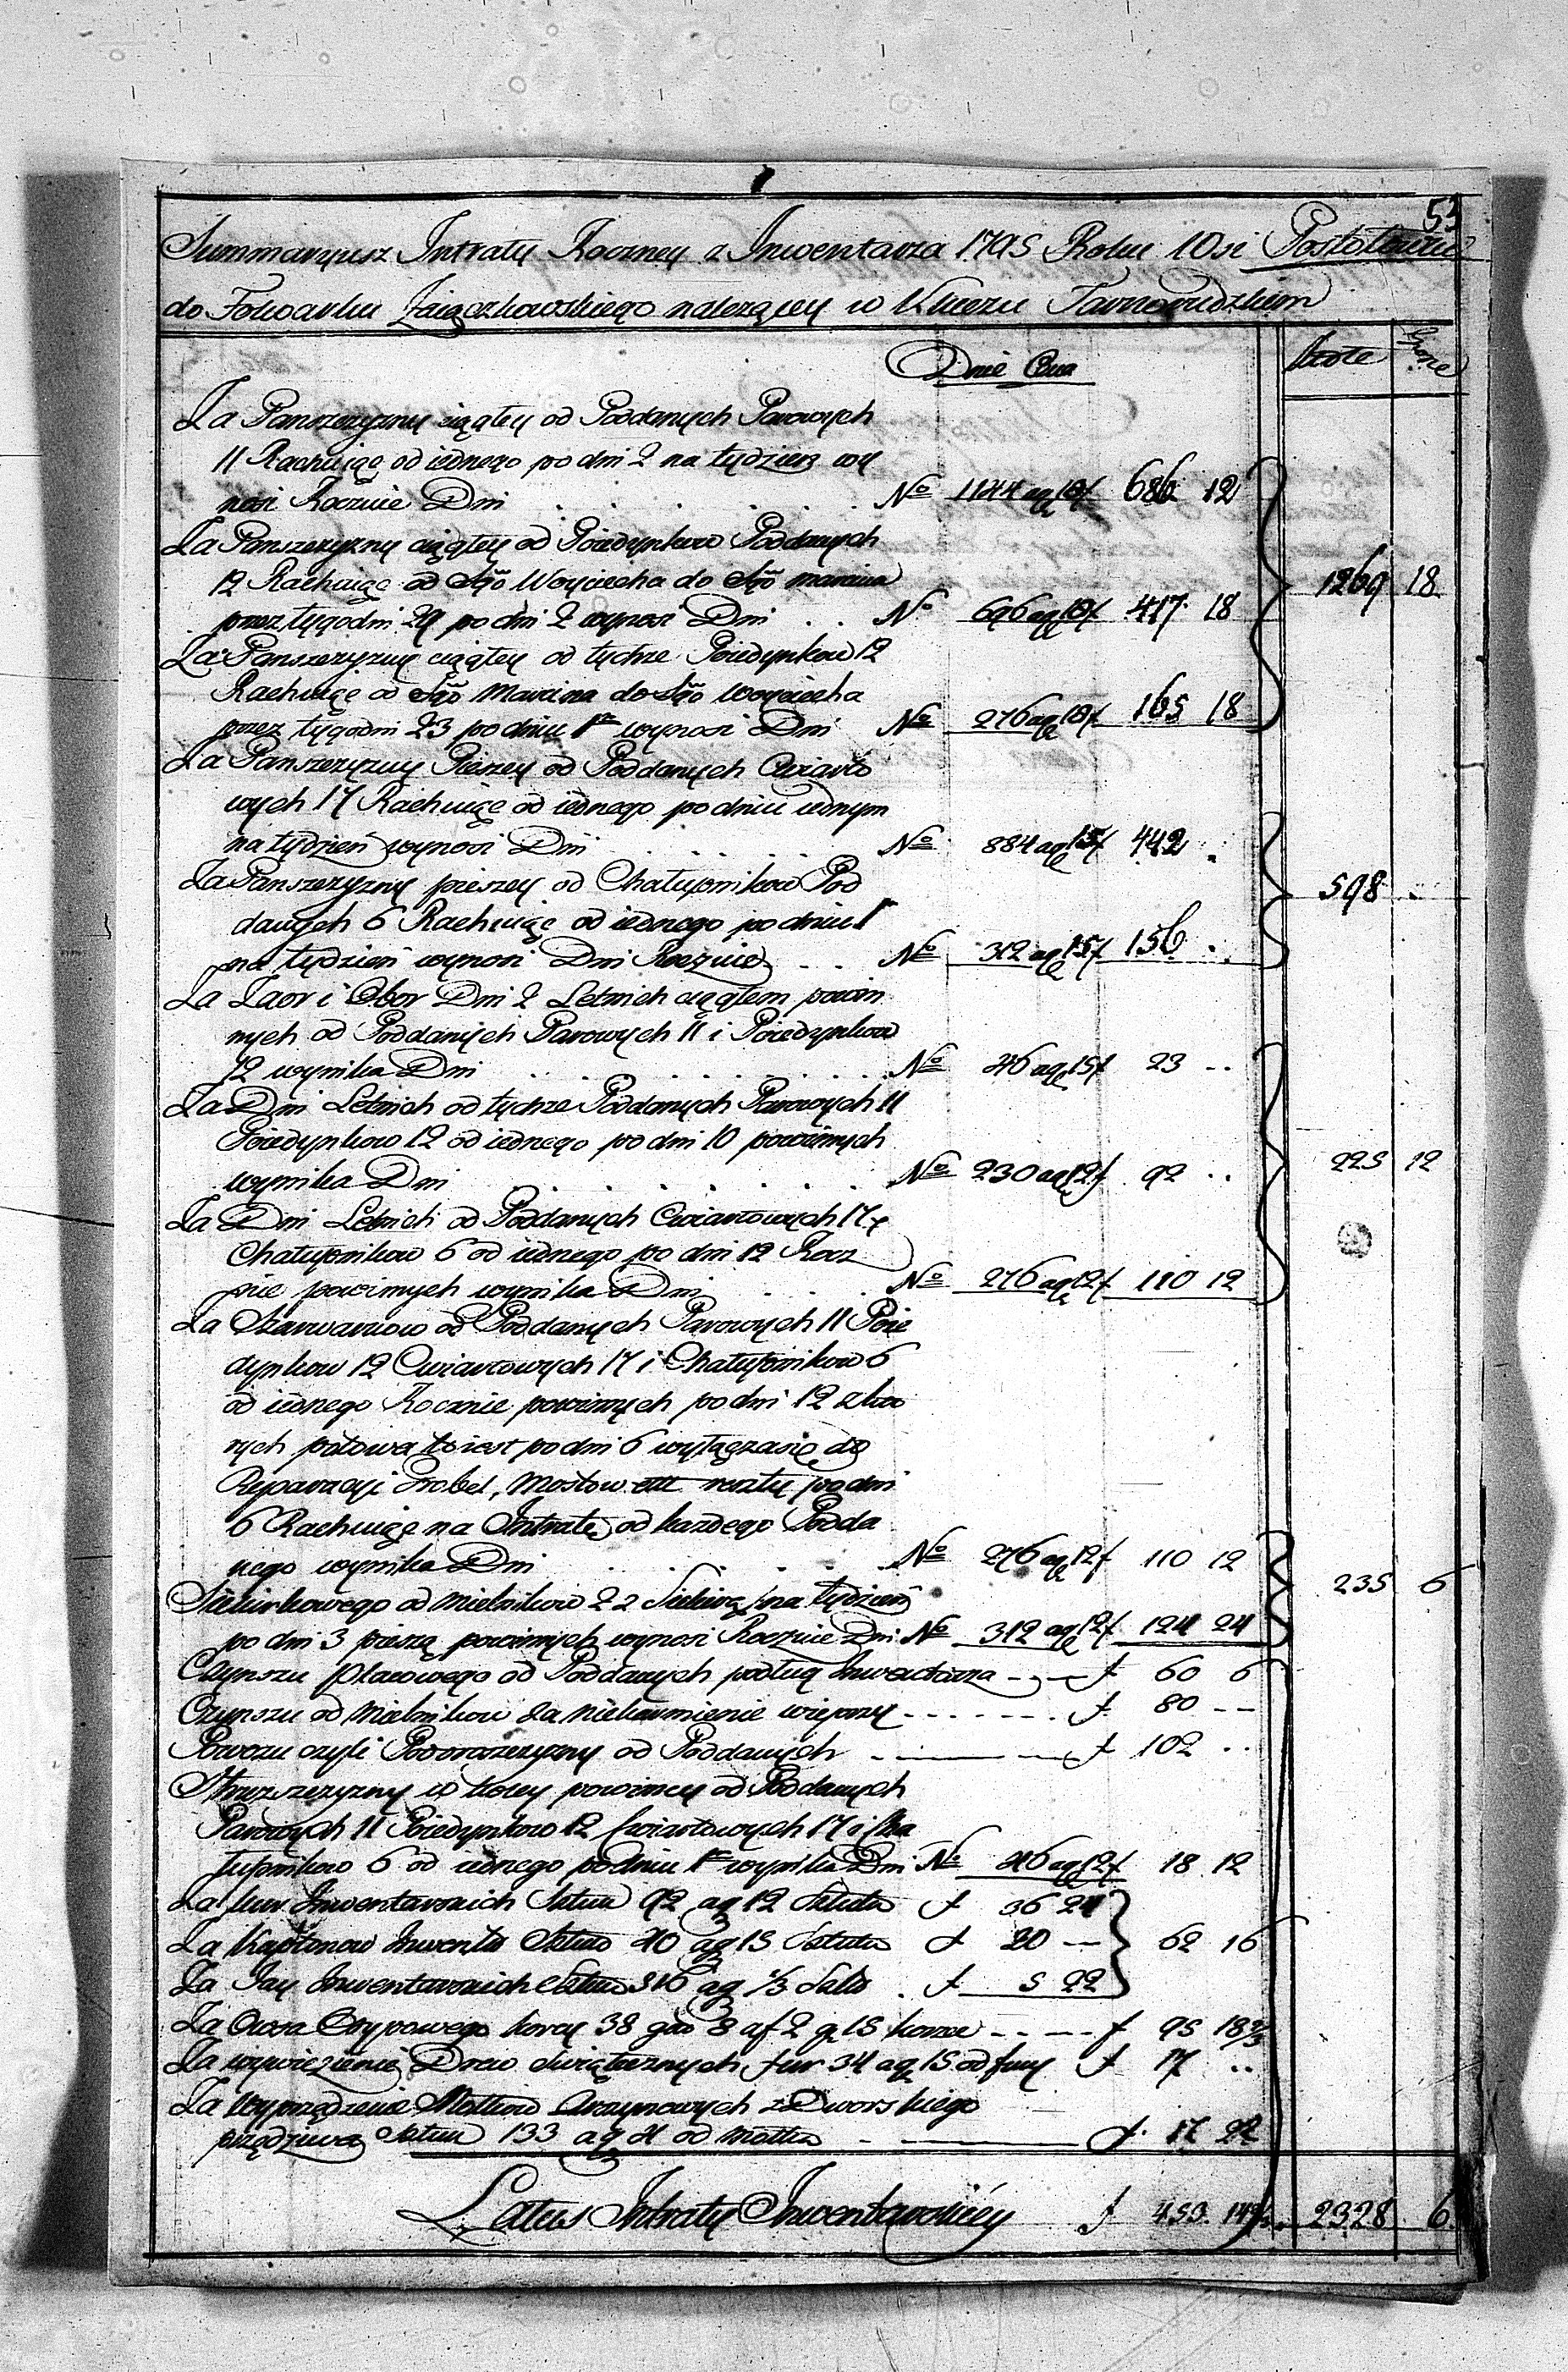 53
Summaryusz Intraty Roczney z Inwentarza 1795 Roku Wsi
do Folwarku Zaiączkowskiego należącey w Kluczu Tarnogrodzkim
Dnie Cena
Złote Grosze
Za Panszczyzny ciągłey od Poddanych Parowych
11 Rachuiąc od iednego po dni 2 na tydzień wy
nosi Rocznie Dni . . . No 1144 ag 18 f 686 12
Za Panszczyzny ciągłey od Poiedynkow Poddanych
12 Rachuiąc od Sgo Woyciecha do Sgo Marcina
przez tygodni 29 po dni 2 wynosi Dni . . No 696 ag 18 f 417 18
1269 18
Za Panszczyzny ciągłey od tychże Poiedynkow 12
Rachuiąc od Sgo Marcina do Sgo Woyciecha
przez tygodni 23 po dniu 1 wynosi Dni No 276 ag 18 f 165 18
Za Panszczyzny Pieszey od Poddanych Cwiarto
wych 17 Rachuiąc od iednego po dniu iednym
na tydzień wynosi Dni . . . No 884 ag 15 f 442 .
Za Panszczyzny pieszey od Chałupnikow Pod
danych 6 Rachuiąc od iednego po dniu 1
na tydzień wynosi Dni Rocznie . . No 312 ag 15 f 156 .
598 . .
Za Zaor i Obor Dni 2 Letnich ciągłem powin
nych od Poddanych Parowych 11 i Poiedynkow
12 wynika Dni . . . No 46 ag 15 f 23 . .
Za Dni Letnich od tychże Poddanych Parowych 11
Poiedynkow 12 od iednego po dni 10 powinnych
wynika Dni . . . No 230 ag 12 f 92 . .
225 12
Za Dni Letnich od Poddanych Cwiartowych 17
Chałupnikow 6 od iednego po dni 12 Rocz
nie powinnych wynika Dni . . . No 276 ag 12 f 110 12
Za Szarwarkow od Poddanych Parowych 11 Poie
dynkow 12 Cwiartowych 17 i Chałupnikow 6
od iednego Rocznie powinnych po dni 12 z kto
rych połowa to iest po dni 6 wyłącza się do
Reparacyi Grobel, Mostow reszty po dni
6 Rachuiąc na Intratę od każdego Podda
nego wynika Dni . . . No 276 ag 12 f 110 12
235 6
Siekierkowego od Mielnikow 2 z Siekierą na tydzień
po dni 3 pieszą powinnych wynosi Rocznie Dni No 312 ag 12 f 124 24
Czynszu Placowego od Poddanych podług Inwentarza - - - f 60 6
Czynszu od Mielnikow za niekarmienie wieprzy - - - f 80 - -
Powozu czyli Podorożczyzny od Poddanych - - - f 102 . .
Stróższczyzny w koley powinney od Poddanych
Parowych 11 Poiedynkow 12 Cwiartowych 17 i Cha
łupnikow 6 od iednego po dniu 1 wynika Dni No 46 ag 12 f 18 12
Za Kur Inwentarskich Sztuk 92 ag 12 Sztuka f 36 24
Za Kapłonow Inwents Sztuk 40 ag 15 Sztuka f 20 - - 62 16
Za Jay Inwentarskich Sztuk 316 ag f 5 22
Za Owsa Czypowego korcy 38 8 af 2 g 15 korzec - - - f 95 18 2/3
Za wywiezienie Drew Swiątecznych fur 34 ag 15 od fury f 17 . .
Za Wyprzędzenie Motkow z Dworskiego
przędziwa Sztuk 133 ag 4 od Motka - - - f 17 22
Latus Intraty Inwentarskiey f 453. 14 2/3 2328 6